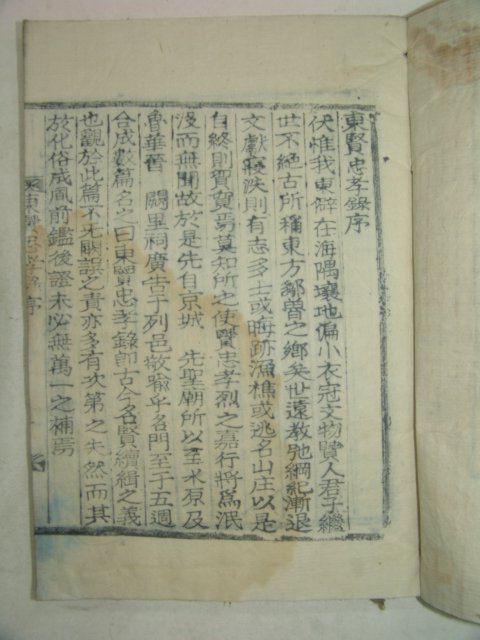 東賢忠孝錄序
伏惟我東僻在海隅壤地偏小衣冠文物賢人君子繼
世不絶古所稱東方鄒魯之鄕矣世遠敎弛綱紀漸退
文獻寢泆則有志多士或晦跡漁樵或逃名山庄以是
自終則賀賀焉莫知所之使賢忠孝烈之嘉行將爲泯
沒而無聞故於是先自京城 先聖廟所以至水原及
魯華晉 闕里祠廣告于列邑敬尋乎名門至于五週
合成數篇名之曰東賢忠孝錄卽古今名賢續緝之義
也觀於此篇不无闕誤之責亦多有次第之失然而其
於化俗成風前鑑後證未必無萬一之補焉
東賢忠孝錄序